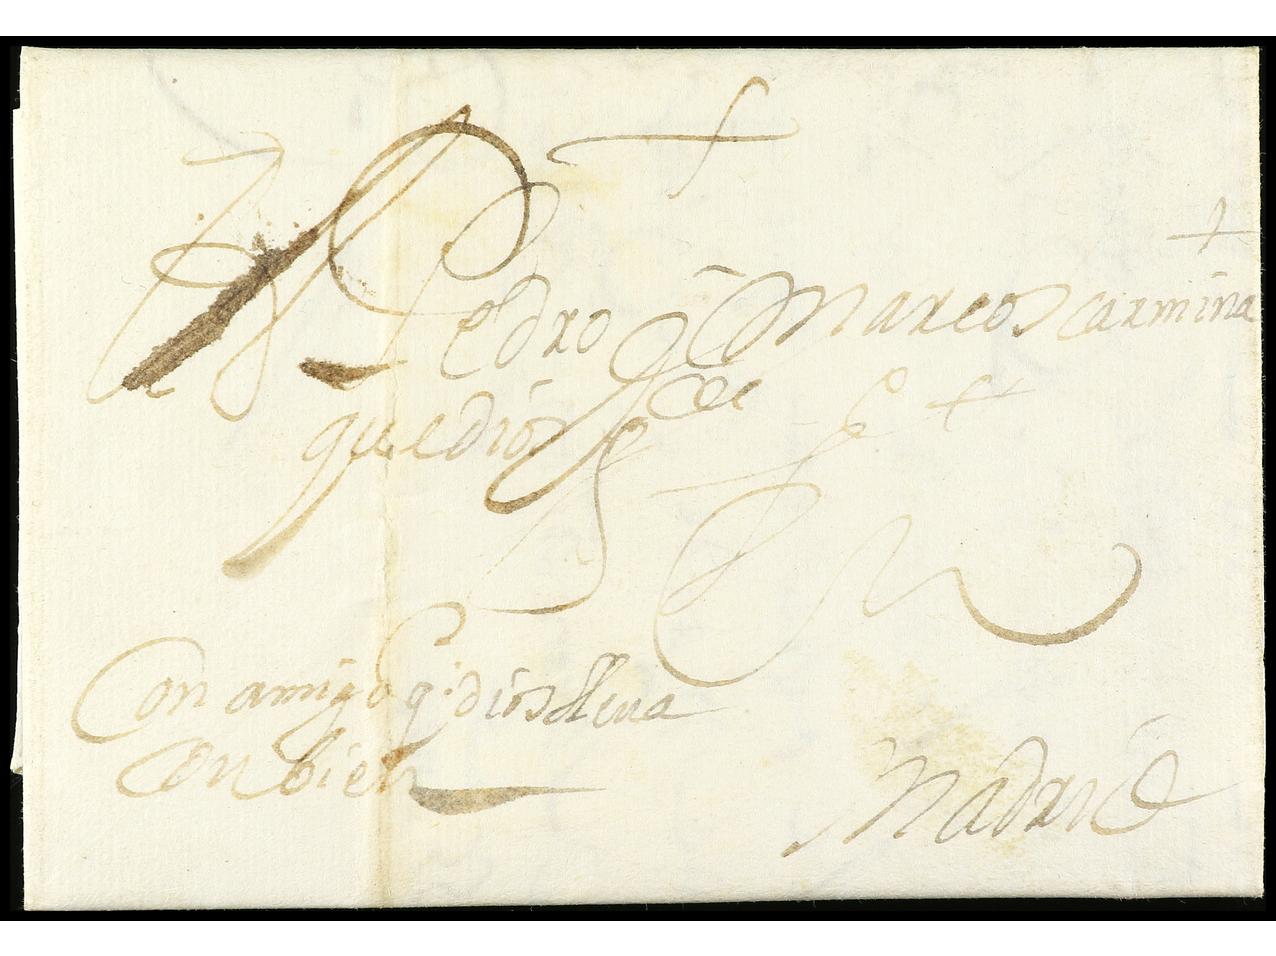 Pedro Marcos carmina
que dios
Con amigo q. dios lleva
con bien
Madrid